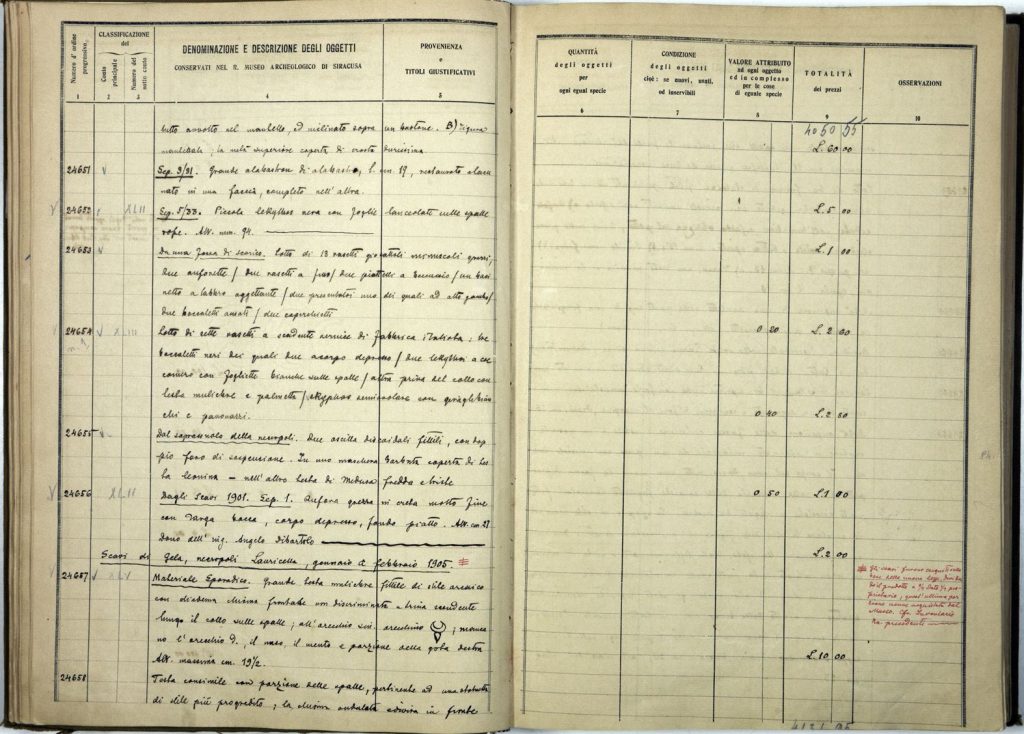 Numero d'ordine progressivo
CLASSIFICAZIONE
del
Conto principale
Numero del sotto conto
DENOMINAZIONE E DESCRIZIONE DEGLI OGGETTI
CONSERVATI NEL R. MUSEO ARCHEOLOGICO DI SIRACUSA
PROVENIENZA
e
TITOLI GIUSTIFICATIVI
1 2 3 4 5
tutto avvolto nel mantello, ed inclinato sopra un bastone. B) figura
mantellata; la metà superiore coperta di crosta durissima
24651 V Sep. 3/31. Grande alabastron di alabastro, l. cm. 19, restaurato
in una faccia, completo nell'altra.
V 24652 XLII Sep. 5/33. Piccola lekythos nera con foglie lanceolate sulle spalle
Alt. mm. 94.
24653 V Da una fossa di scarico. Lotto di 13 vasetti giocattoli minuscoli grezzi,
due anforette / due vasetti a / due piattelli a / un baci
netto a labbro aggettante / due uno dei quali ad alto gambo /
due boccaletti ansati / due coperchietti
24654 V XLIII Lotto di sette vasetti a scadente vernice di fabbrica italiota: tre
boccaletti neri dei quali due a corpo depresso / due lekythoi a
con fogliette bianche sulle spalle / altra priva del collo con
testa muliebre e palmetta / skyphos con
chi e paonazzi.
24655 V Dal soprassuolo della necropoli. Due oscilla discoidali fittili, con dop
pio foro di sospensione. In uno maschera barbuta coperta di tes
ta leonina - nell'altro testa di Medusa
V 24656 XLII Dagli Scavi 1901. Sep. 1. Anfora grezza in creta molto fine
con larga bocca, corpo depresso, fondo piatto. Alt. cm 27
Dono dell'sig. Angelo Dibartolo
Scavi di Gela, necropoli Lauricella, gennaio e febbraio 1905.
24657 V XLV Materiale Sporadico. Grande testa muliebre fittile di stile arcaico
con diadema chioma frontale con discriminatura e scendente
lungo il collo sulle spalle; all'orecchio sin. orecchino ; manca
no l'orecchio d. il naso, il mento e porzione della gota destra
Alt. massima cm. 19½.
24658 Testa consimile con porzione delle spalle, pertinente ad una statuetta
di stile più progredito; la chioma ondulata e divisa in fronte
QUANTITÀ
degli oggetti
per
ogni eguali specie
CONDIZIONE
degli oggetti
cioè: se nuovi, usati,
od inservibili
VALORE ATTRIBUITO
ad ogni oggetto
ed in complesso
per le cose
di eguale specie
TOTALITÀ
dei prezzi
OSSERVAZIONI
6 7 8 9 10
4050 55
L. 60 00
L. 5 00
L. 1 00
0 20 L. 2 60
0 40 L. 2 80
0 50 L. 1 00
L. 2 00
Gli scavi furono eseguiti sulla
base della nuova legge,
il prodotto a ¾ Stato ¼ pro
prietario, quest'ultima por
zione venne acquistata dal
Museo. Cfr. Inventario
precedenti
L. 10 00